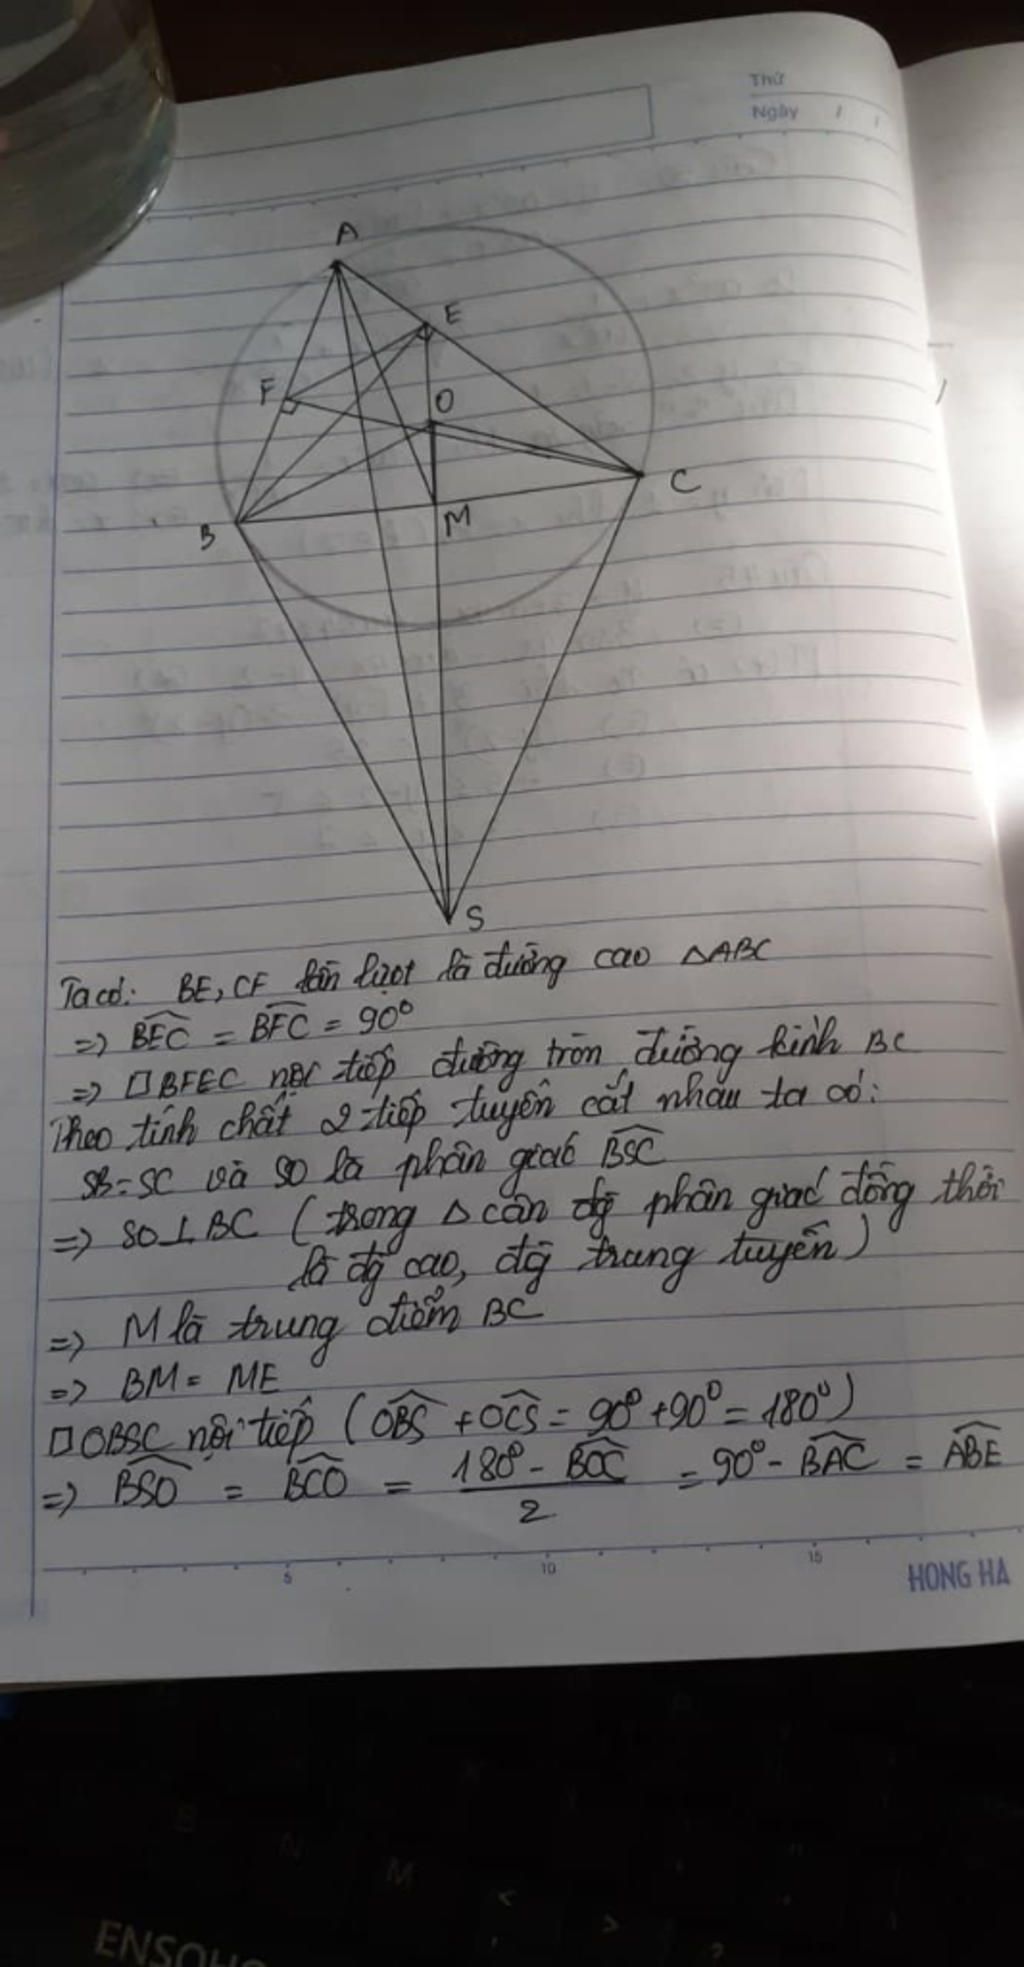 Thứ
Ngày / /
A
E
F
O
C
B
M
S
Ta có: BE, CF lần lượt là đường cao △ABC
=> BEC = BFC = 90°
=> □BFEC nội tiếp đường tròn đường kính BC
Theo tính chất 2 tiếp tuyến cắt nhau ta có:
SB = SC và SO là phân giác BSC
=> SO⊥BC (trong △ cân đg phân giác đồng thời
là đg cao, đg trung tuyến)
=> M là trung điểm BC
=> BM = ME
□OBSC nội tiếp (OBS + OCS = 90° + 90° = 180°)
=> BSO = BCO = (180° - BOC)/2 = 90° - BAC = ABE
5 10 15
HONG HA
B N M < > ?